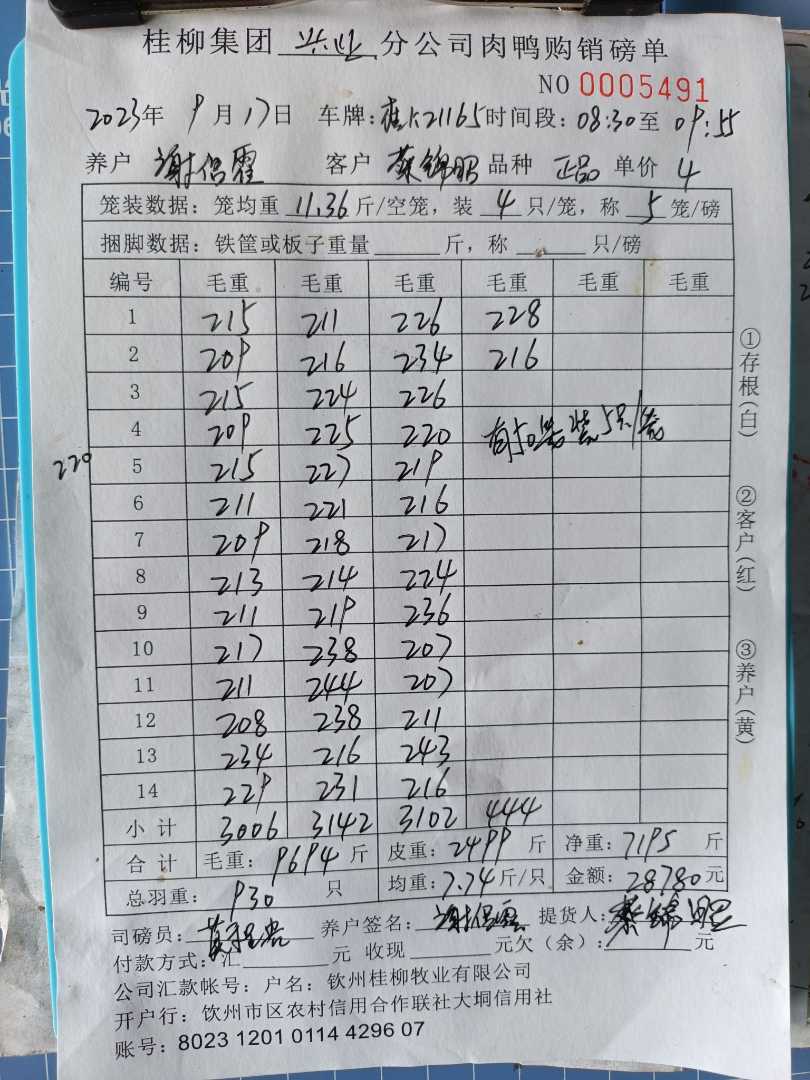 桂柳集团 兴业 分公司肉鸭购销磅单
NO 0005491
2023年 9月17日 车牌:桂K21165 时间段:08:30至 09:55
养户 谢侣霍 客户 蔡锦昭 品种 正品 单价 4
笼装数据:笼均重 11.36 斤/空笼,装 4 只/笼,称 5 笼/磅
捆脚数据:铁筐或板子重量______斤,称______只/磅
编号 毛重 毛重 毛重 毛重 毛重 毛重
1 215 211 226 228
2 209 216 234 216
3 215 224 226
4 209 225 220 有50笼装5只/笼
220
5 215 227 219
6 211 221 216
7 209 218 217
8 213 214 224
9 211 219 236
10 217 238 207
11 211 244 207
12 208 238 211
13 234 216 243
14 229 231 216
小计 3006 3142 3102 444
合计 毛重:9694斤 皮重:2499 斤 净重:7195 斤
总羽重:930 只 均重:7.74斤/只 金额:28780元
司磅员: 养户签名: 提货人:
付款方式:汇______元 收现______元欠(余):______元
公司汇款帐号: 户名: 钦州桂柳牧业有限公司
开户行: 钦州市区农村信用合作联社大垌信用社
账号: 8023 1201 0114 4296 07
①存根(白)
②客户(红)
③养户(黄)